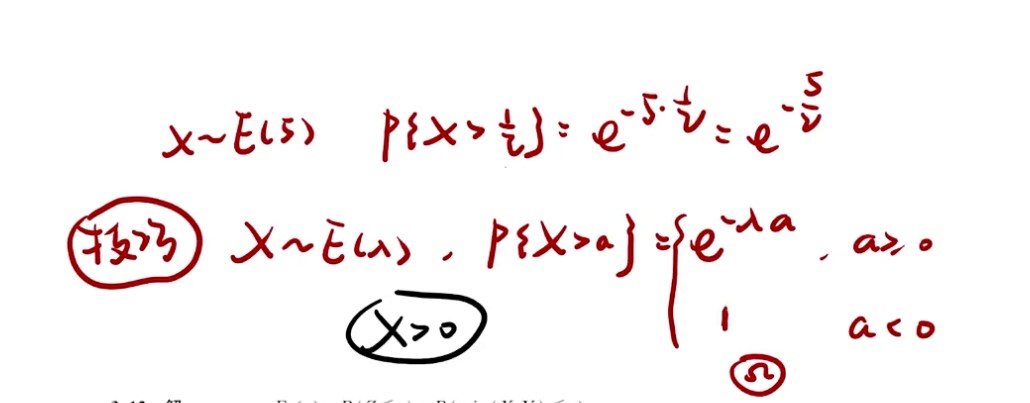 X~E(5) P{X>1/2}=e^{-5·1/2}=e^{-5/2}
技巧 X~E(λ), P{X>a}={e^{-λa}, a≥0
1 a<0
X>0
Ω